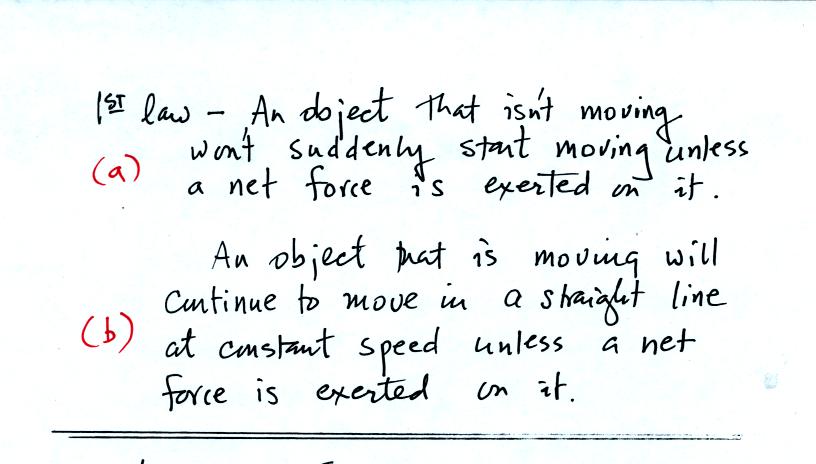 1ST law – An object that isn't moving
(a) won't suddenly start moving unless
a net force is exerted on it.
An object that is moving will
continue to move in a straight line
(b) at constant speed unless a net
force is exerted on it.